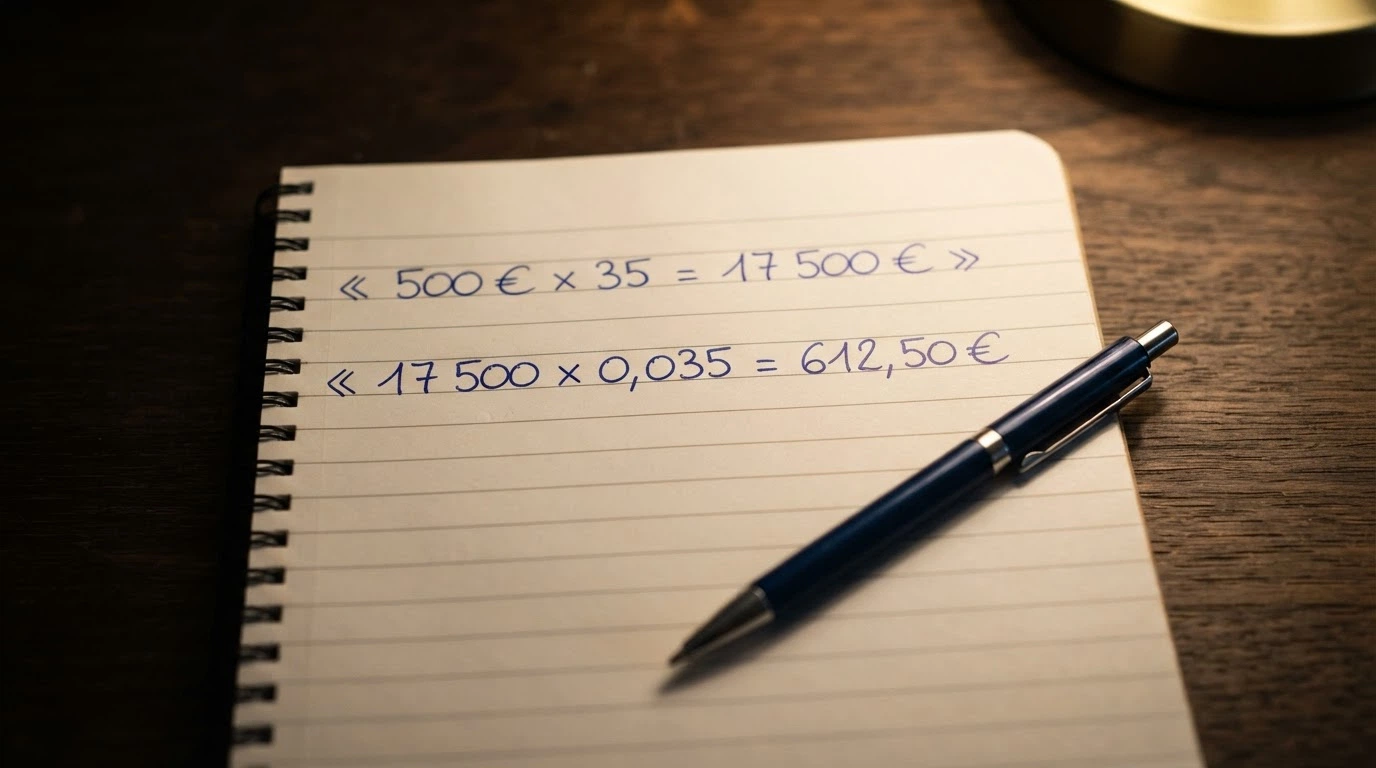 « 500 € × 35 = 17 500 € »
« 17 500 × 0,035 = 612,50 €